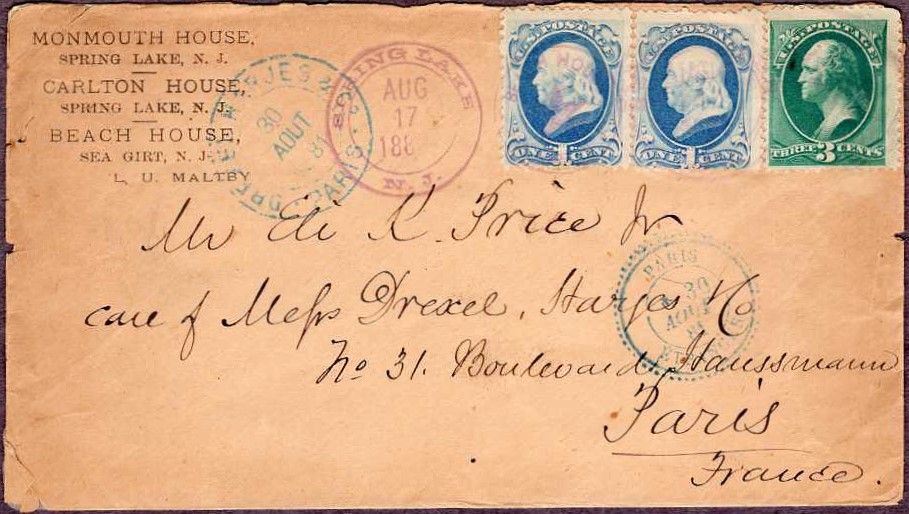 MONMOUTH HOUSE,
SPRING LAKE, N. J.
CARLTON HOUSE,
SPRING LAKE, N. J.
BEACH HOUSE,
SEA GIRT, N. J.
L. U. MALTBY
HARJES &
30
AOUT
81
PARIS
SPRING LAKE
AUG
17
188
N. J.
U.S. POSTAGE
ONE 1 CENT
U.S. POSTAGE
ONE 1 CENT
U.S. POSTAGE
THREE 3 CENTS
Mr Eli K. Price Jr
care of Messrs Drexel, Harjes & Co
No 31. Boulevard Haussmann
Paris
France.
PARIS
30
AOUT